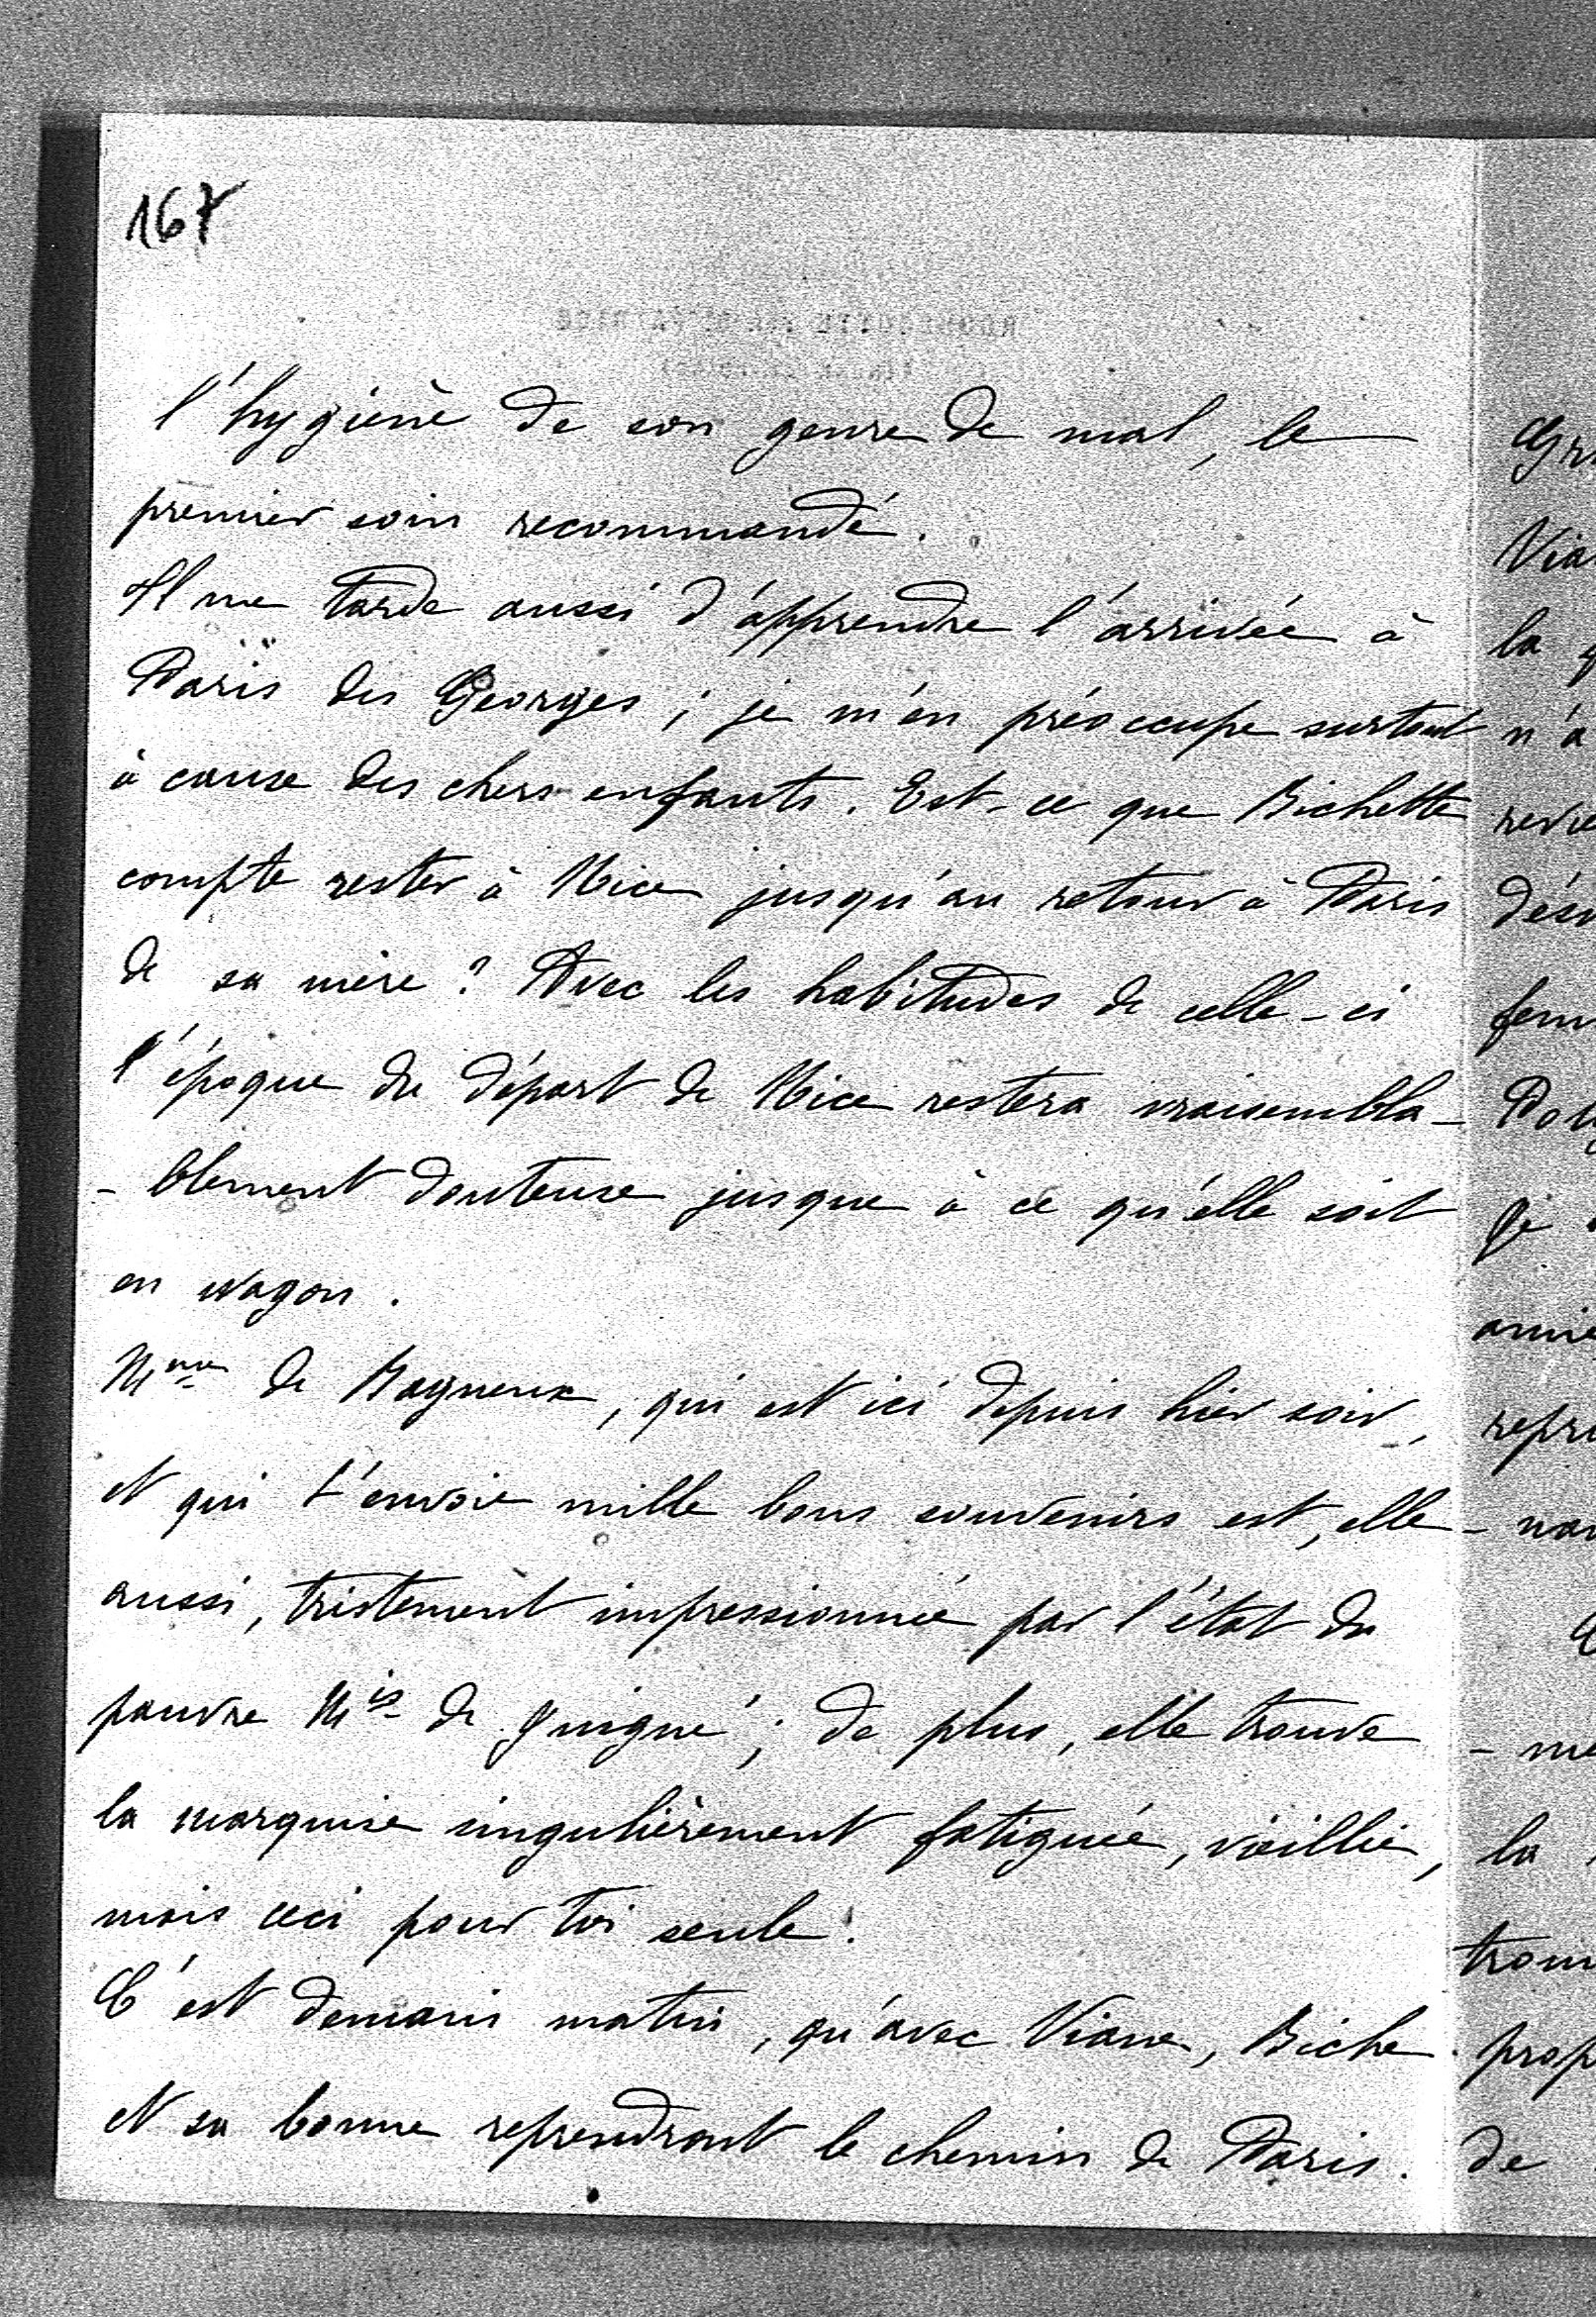 167
l'hygiène de son genre de mal, le
premier soin recommandé.
Il me tarde aussi d'apprendre l'arrivée à
Paris des Georges ; je m'en préoccupe surtout
à cause des chers enfants. Est-ce que Bichette
compte rester à Nice jusqu'au retour à Paris
de sa mère ? Avec les habitudes de celle-ci
l'époque du départ de Nice restera vraisembla-
-blement douteuse jusque à ce qu'elle soit
en wagon.
Mme de Bagneux, qui est ici depuis hier soir,
et qui t'envoie mille bons souvenirs est, elle
aussi, tristement impressionnée par l'état du
pauvre Mis de Juigné ; de plus, elle trouve
la marquise singulièrement fatiguée, vieillie,
mais ceci pour toi seule !
C'est demain matin, qu'avec Viane, Biche
et sa bonne reprendront le chemin de Paris.